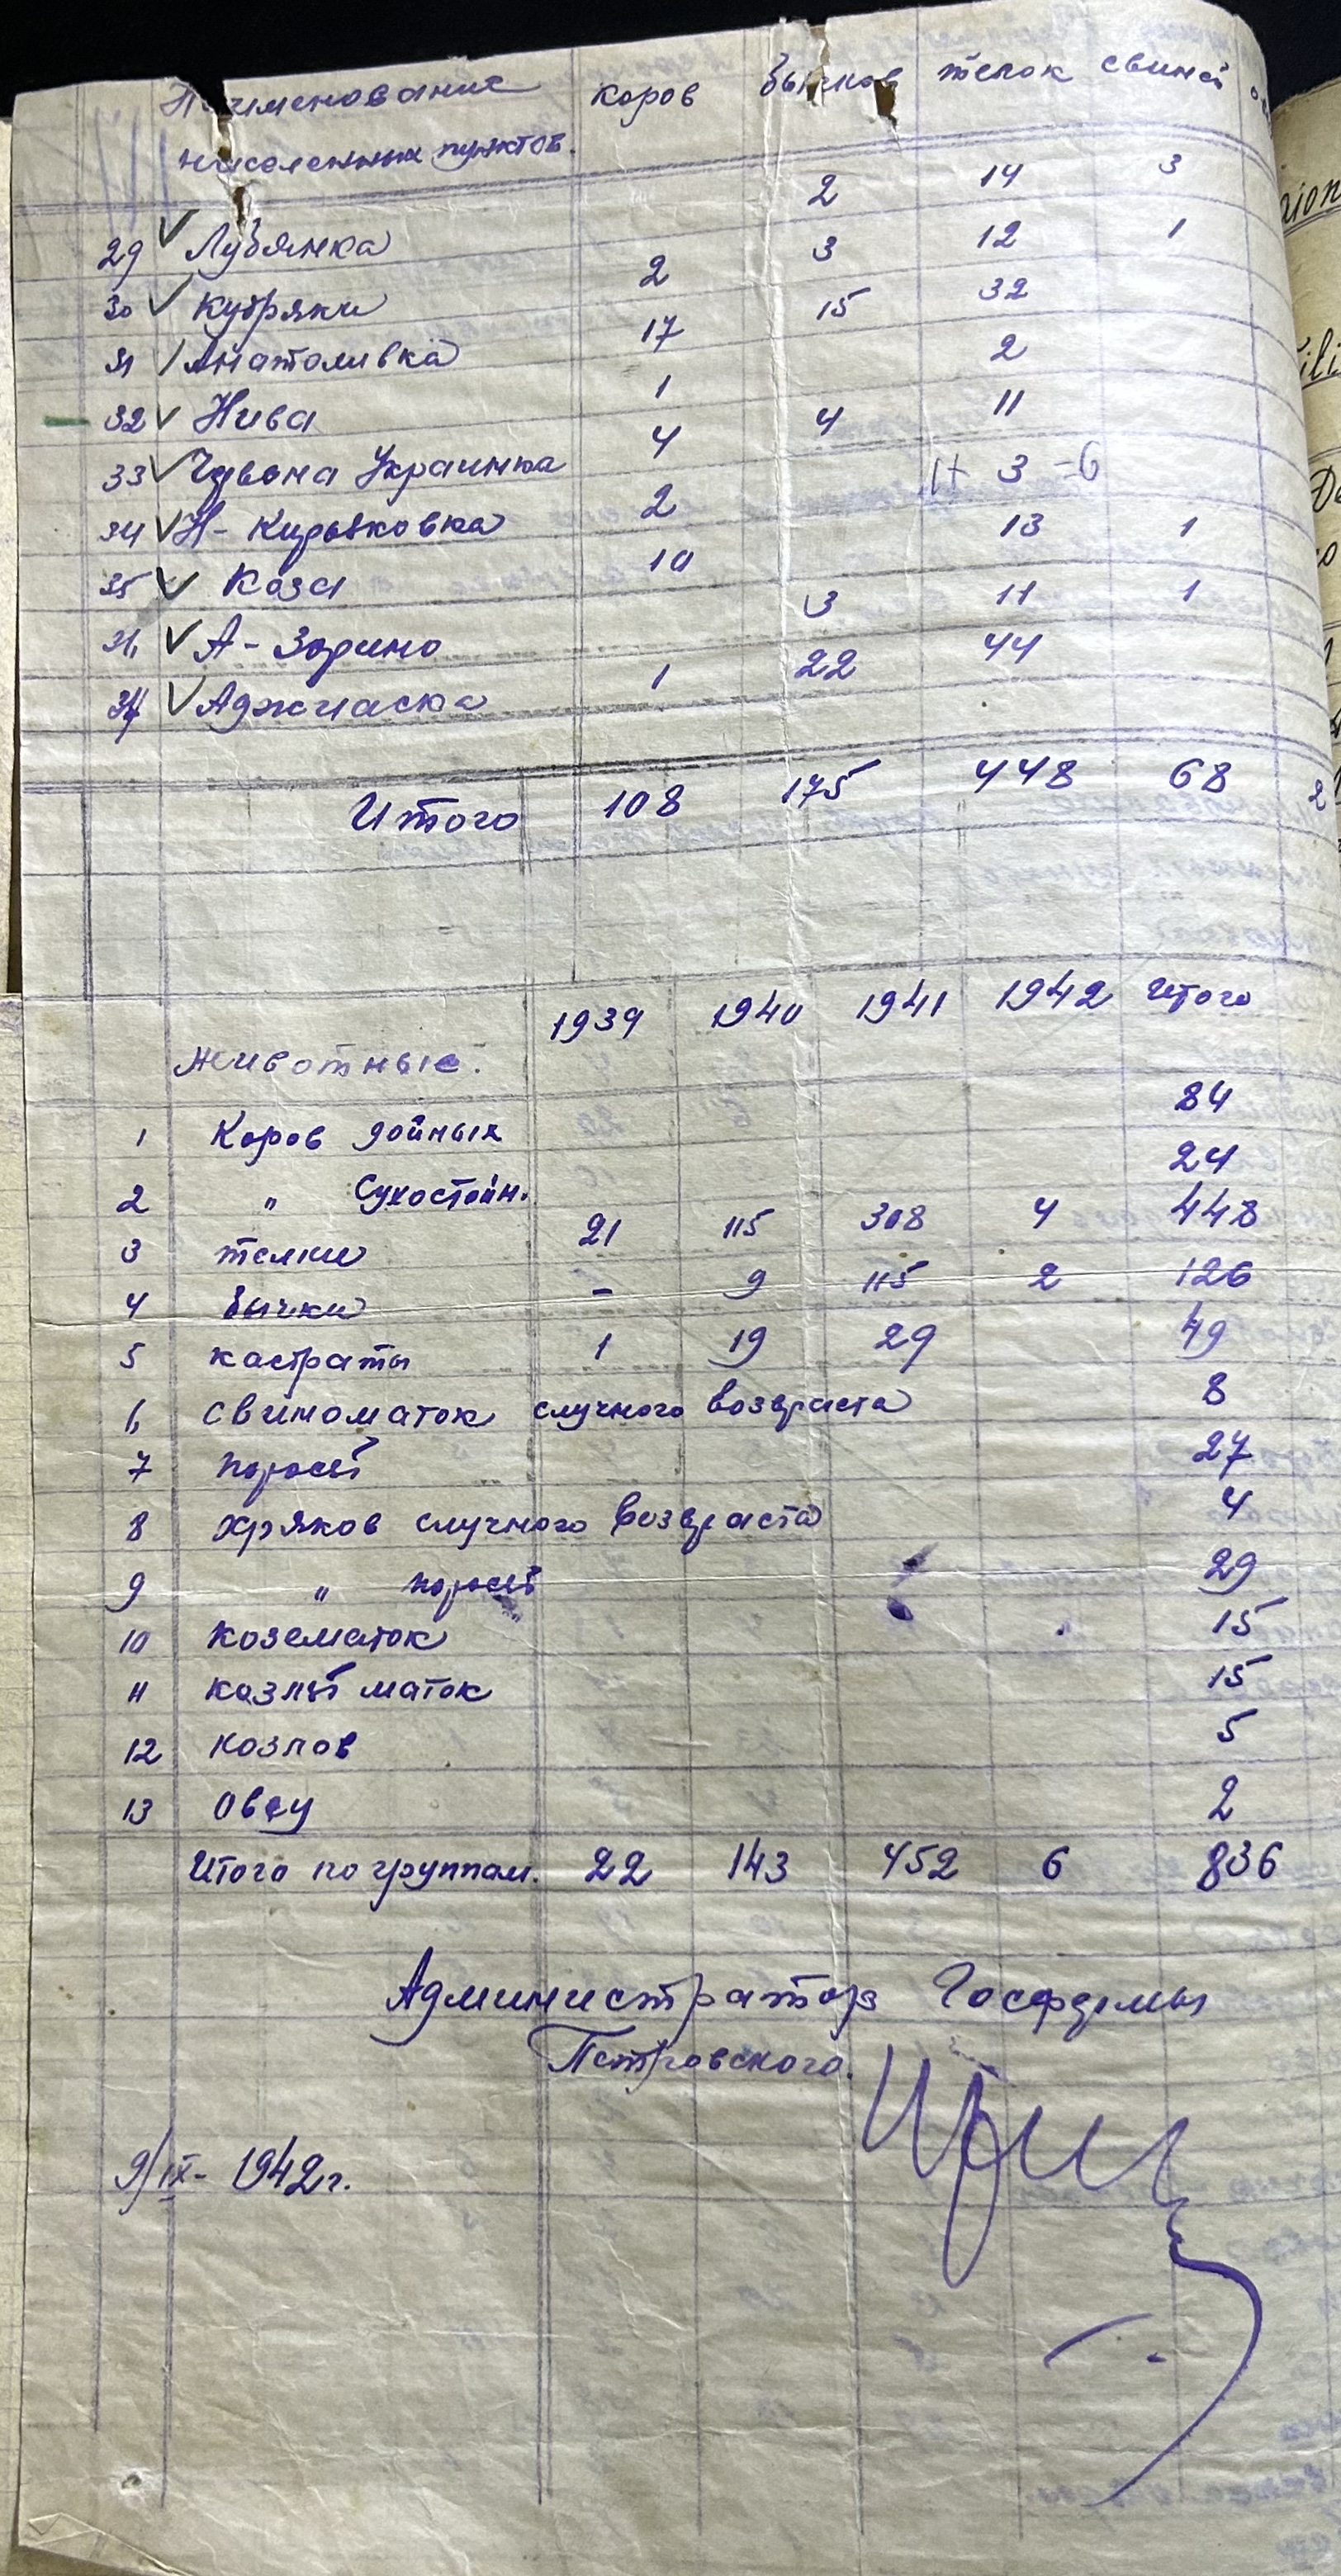 Наименование коров бычков телок свиней
населенных пунктов.
29 Лубянка 2 14 3
30 Кубряки 2 3 12 1
31 Анатоливка 17 15 32
32 Нива 1 2
33 Червона Украинка 4 4 11
34 Н-Кирьяковка 2 3 - 6
35 Коза 10 13 1
36 А-Зорино 3 11 1
37 Аджиаска 1 22 44
Итого 108 175 448 68 2
1939 1940 1941 1942 Итого
Животные.
1 Коров дойных 84
2 " Сухостойн. 24
3 телки 21 115 308 4 448
4 бычки - 9 115 2 126
5 кастраты 1 19 29 49
6 свиноматок случного возраста 8
7 поросят 27
8 хряков случного возраста 4
9 " поросят 29
10 козематок 15
11 козлят маток 15
12 козлов 5
13 Овец 2
Итого по группам. 22 143 452 6 836
Администратор Госфермы
Петровского.
9/IX - 1942г.